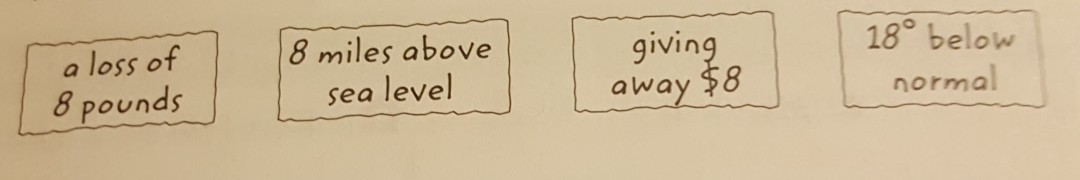 a loss of
8 pounds
8 miles above
sea level
giving
away $8
18° below
normal